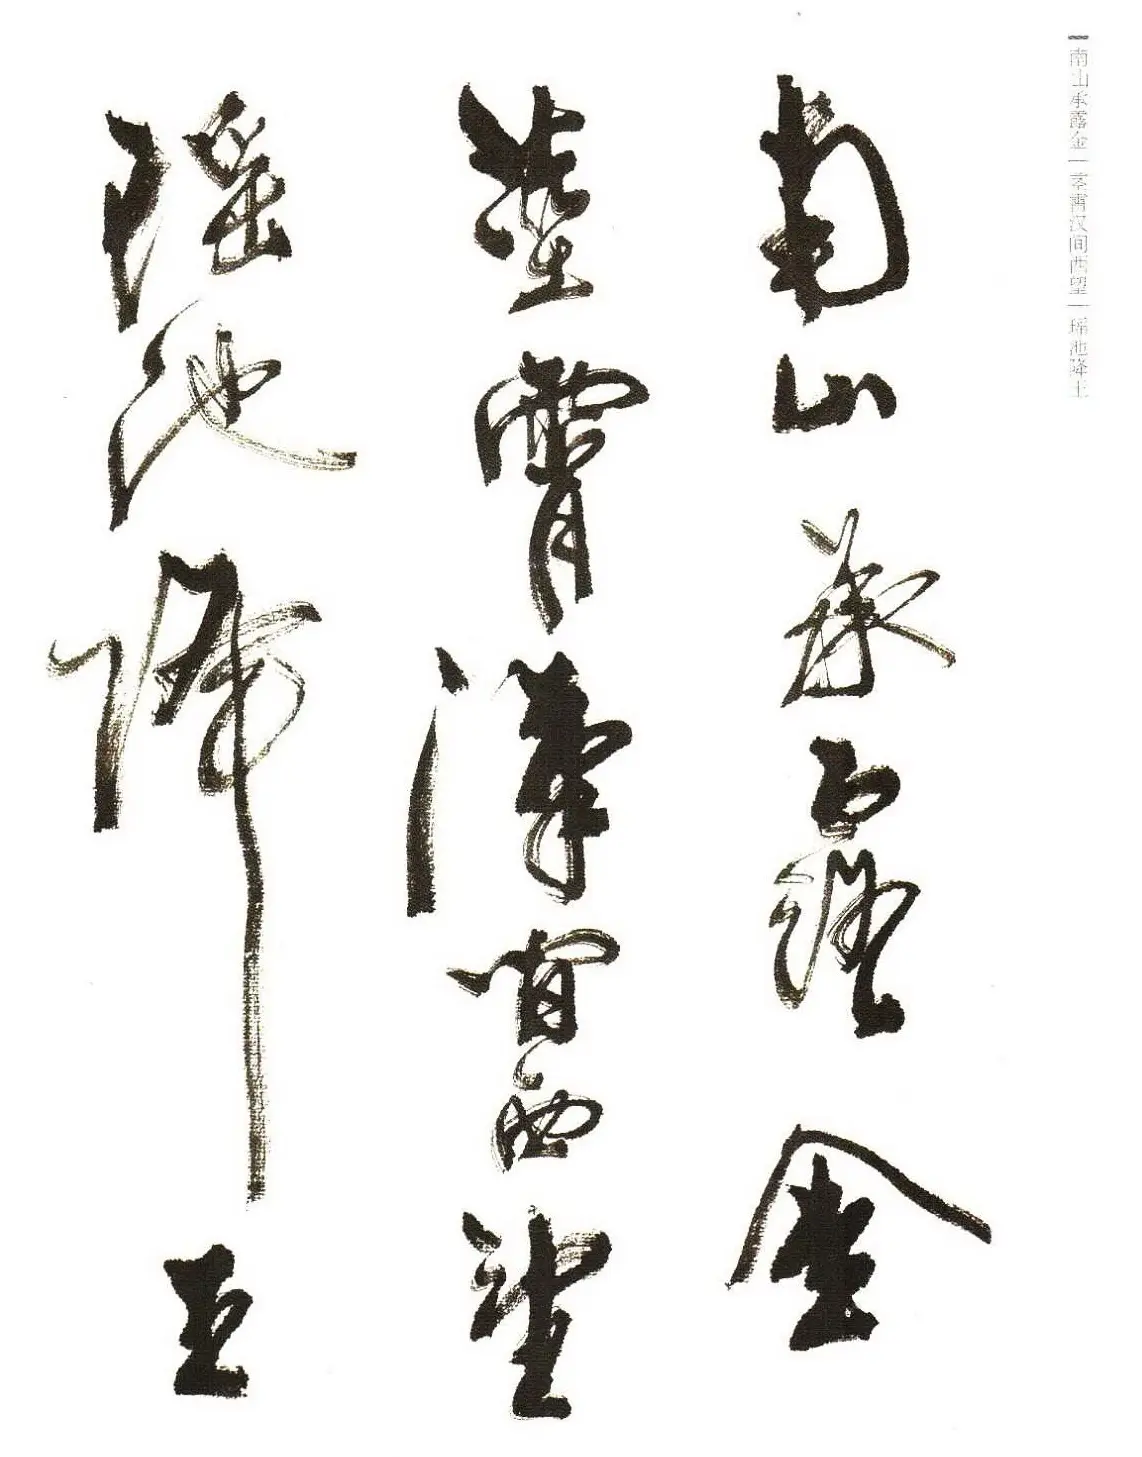 南山承露金|茎霄汉间西望|瑶池降王
南山承露金
莖霄漢間西望
瑶池降王